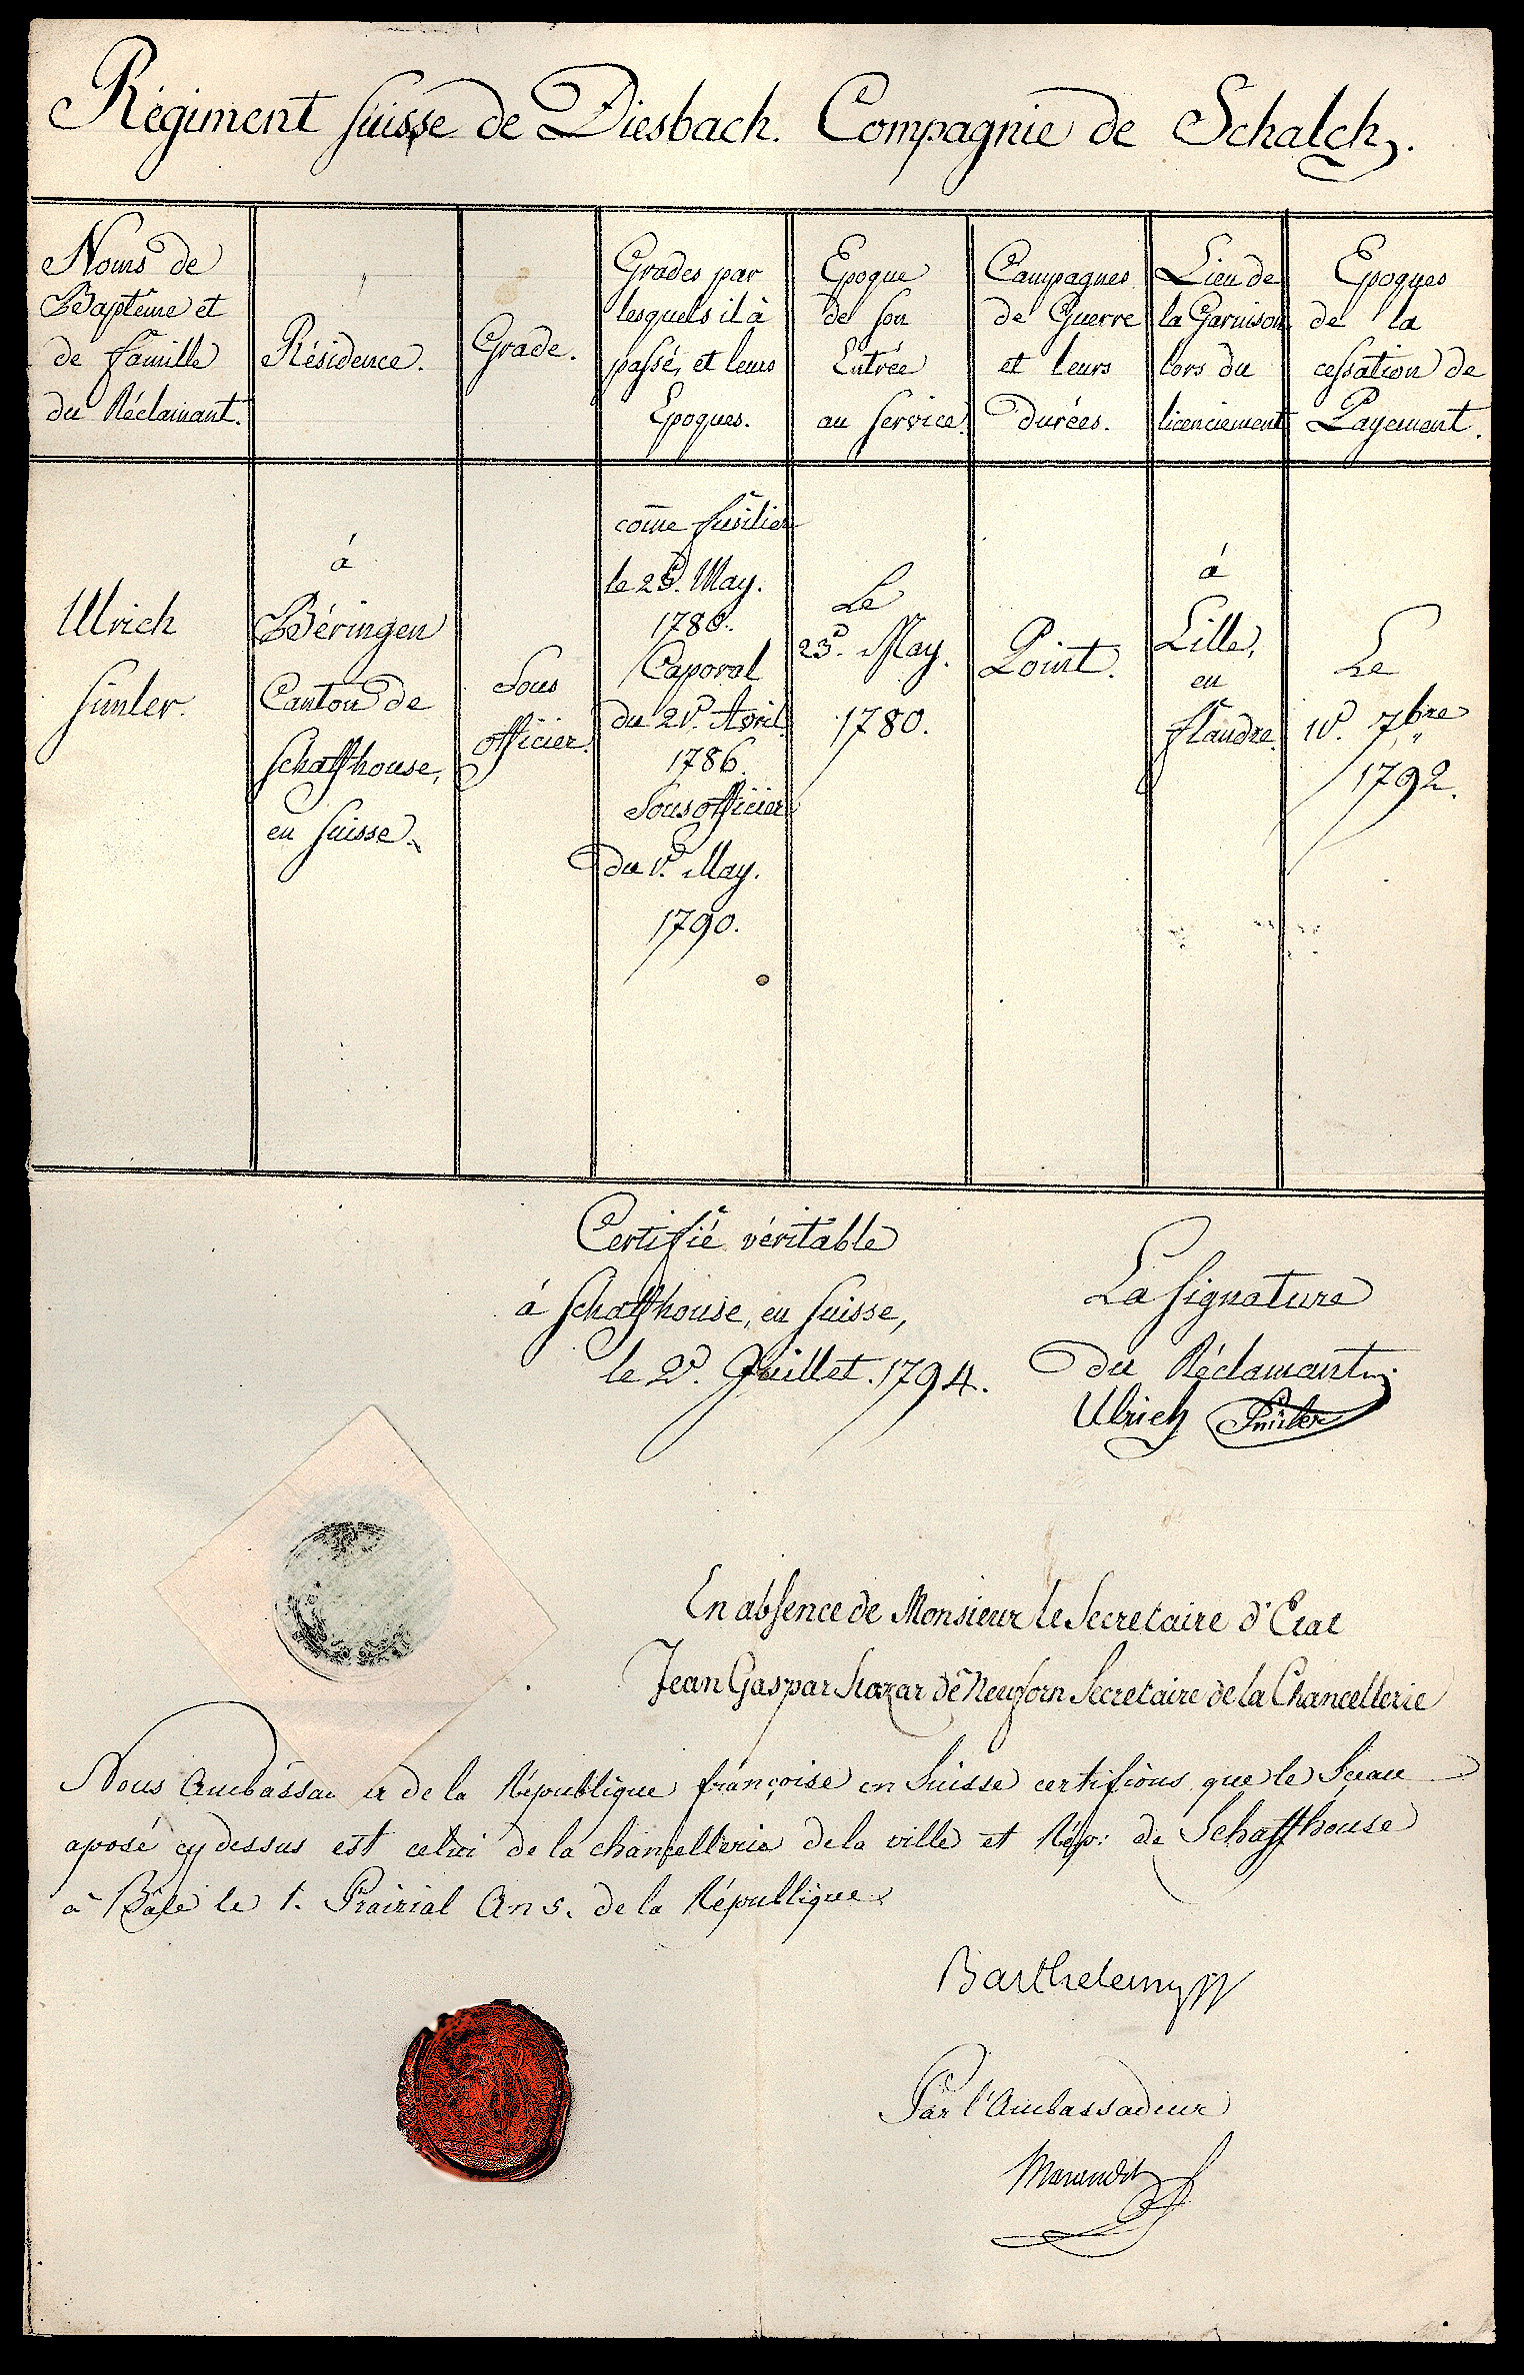 Régiment Suisse de Diesbach. Compagnie de Schalch.
Noms de
Baptême et
de famille
du Réclamant.
Résidence.
Grade.
Grades par
lesquels il à
passé, et leurs
Epoques.
Epoque
de son
Entrée
au Service.
Campagnes
de Guerre
et leurs
durées.
Lieu de
la Garnison
lors du
licenciement
Epoques
de la
cessation de
Payement.
Ulrich
Simler.
á
Béringen
Canton de
Schaffhouse,
en Suisse.
Sous
officier.
com̄e fusilier
le 23.d May.
1780.
Caporal
du 2.d Avril
1786.
Sousofficier
du 1.d May.
1790.
Le
23.d May.
1780.
Point.
á
Lille,
en
flandre.
Le
10.d 7bre
1792.
Certifié véritable
á Schaffhouse, en Suisse,
le 2.d Juillet. 1794.
La Signature
du Réclamant.
Ulrich Simler
En absence de Monsieur le Secretaire d'Etat
Jean Gaspar Stokar de Neuforn Secretaire de la Chancellerie
Nous Ambassa er de la République françoise en Suisse certifions que le Sceau
aposé cy dessus est celui de la chancellerie de la ville et Rép: de Schaffhouse
à Bâle le 1. Prairial An 5. de la République
Barthelemy
Par l'Ambassadeur